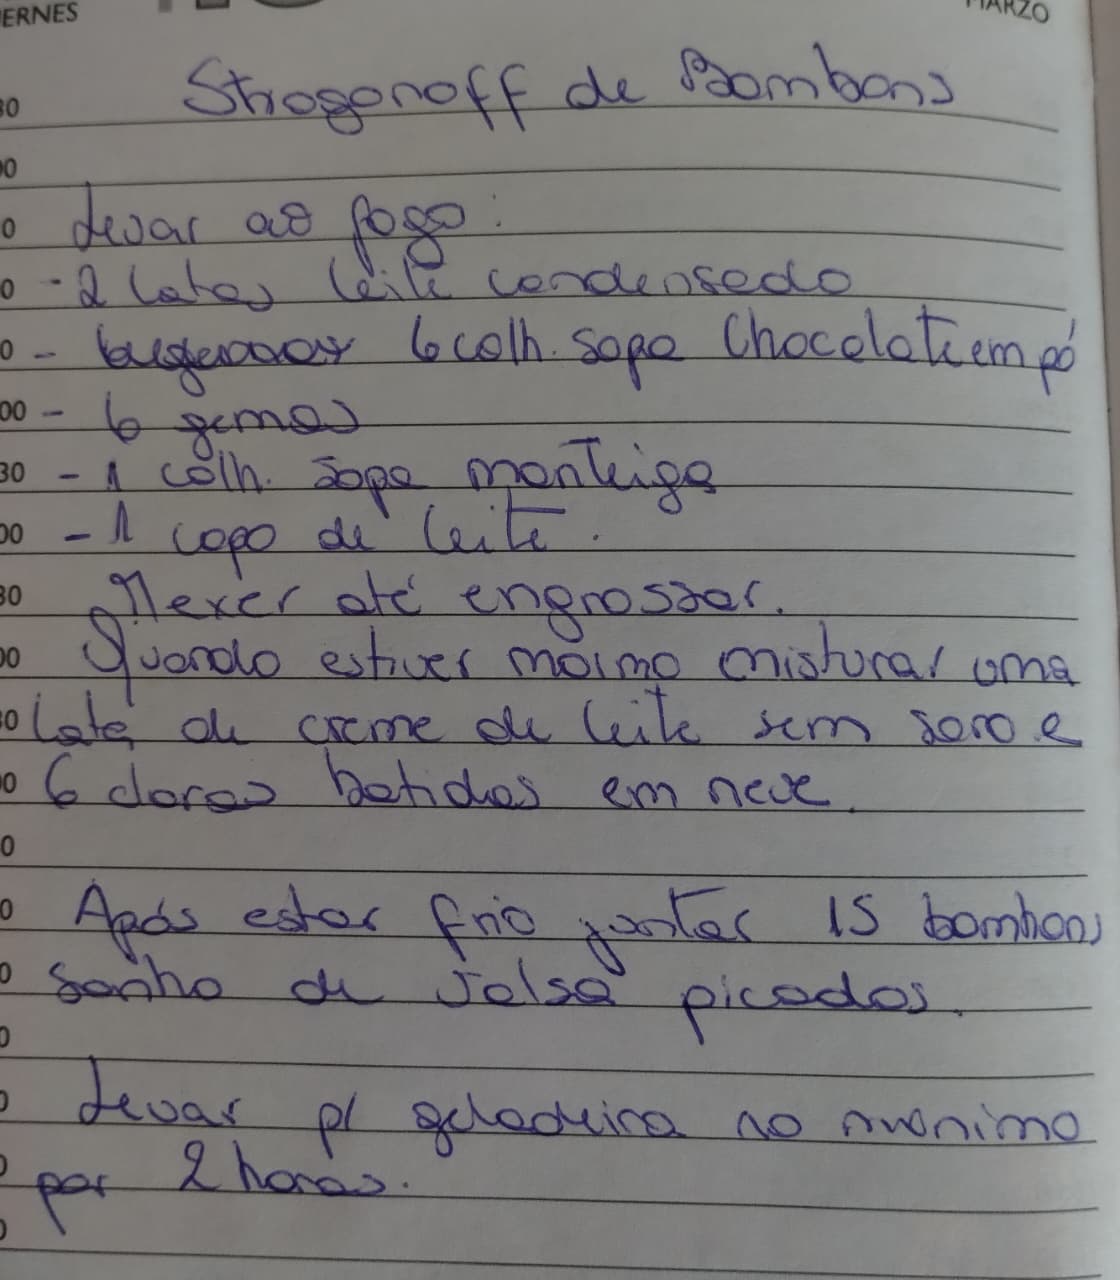 ERNES
MARZO
Strogonoff de Bombons
Levar ao fogo:
- 2 latas leite condensado
- 6 colh. sopa Chocolate em pó
- 6 gemas
- 1 colh. sopa manteiga
- 1 copo de leite.
Mexer até engrossar.
Quando estiver morno misturar uma
lata de creme de leite sem soro e
6 claras batidas em neve.
Após estar frio juntar 15 bombons
Sonho de Valsa picados.
Levar p/ geladeira no mínimo
por 2 horas.